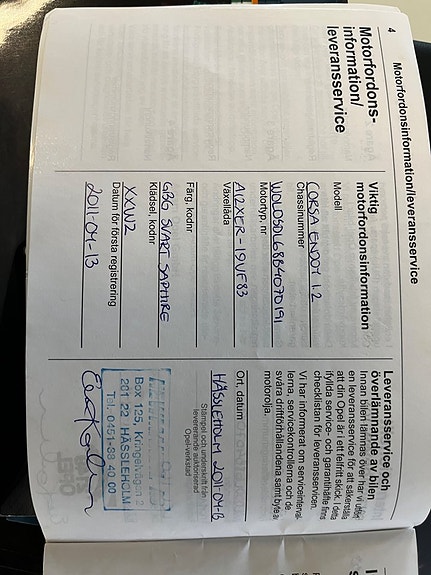 4
Motorfordonsinformation/leveransservice
Motorfordons-
information/
leveransservice
Viktig
motorfordonsinformation
Modell
CORSA ENJOY 1.2
Chassinummer
Motortyp, nr
A12XER-19UF83
Växellåda
Färg, kodnr
GBG SVART SAPHIRE
Klädsel, kodnr
XXW2
Datum för första registrering
2011-04-13
Leveransservice och
överlämnande av bilen
Innan bilen lämnas över har vi utfört
en leveransservice för att säkerställa
att din Opel är i ett felfritt skick. I detta
ifyllda service- och garantihäfte finns
checklistan för leveransservicen.
Vi har informerat om serviceinterval-
lerna, servicekontrollerna och de
svåra driftförhållandena samt byte av
motorolja.
Ort, datum
HÄSSLEHOLM 2011-04-13
Stämpel och underskrift från
levererande auktoriserad
Opel-verkstad
Box 125, Kringelvägen 2
201 22 HÄSSLEHOLM
Tel. 0451-38 40 00